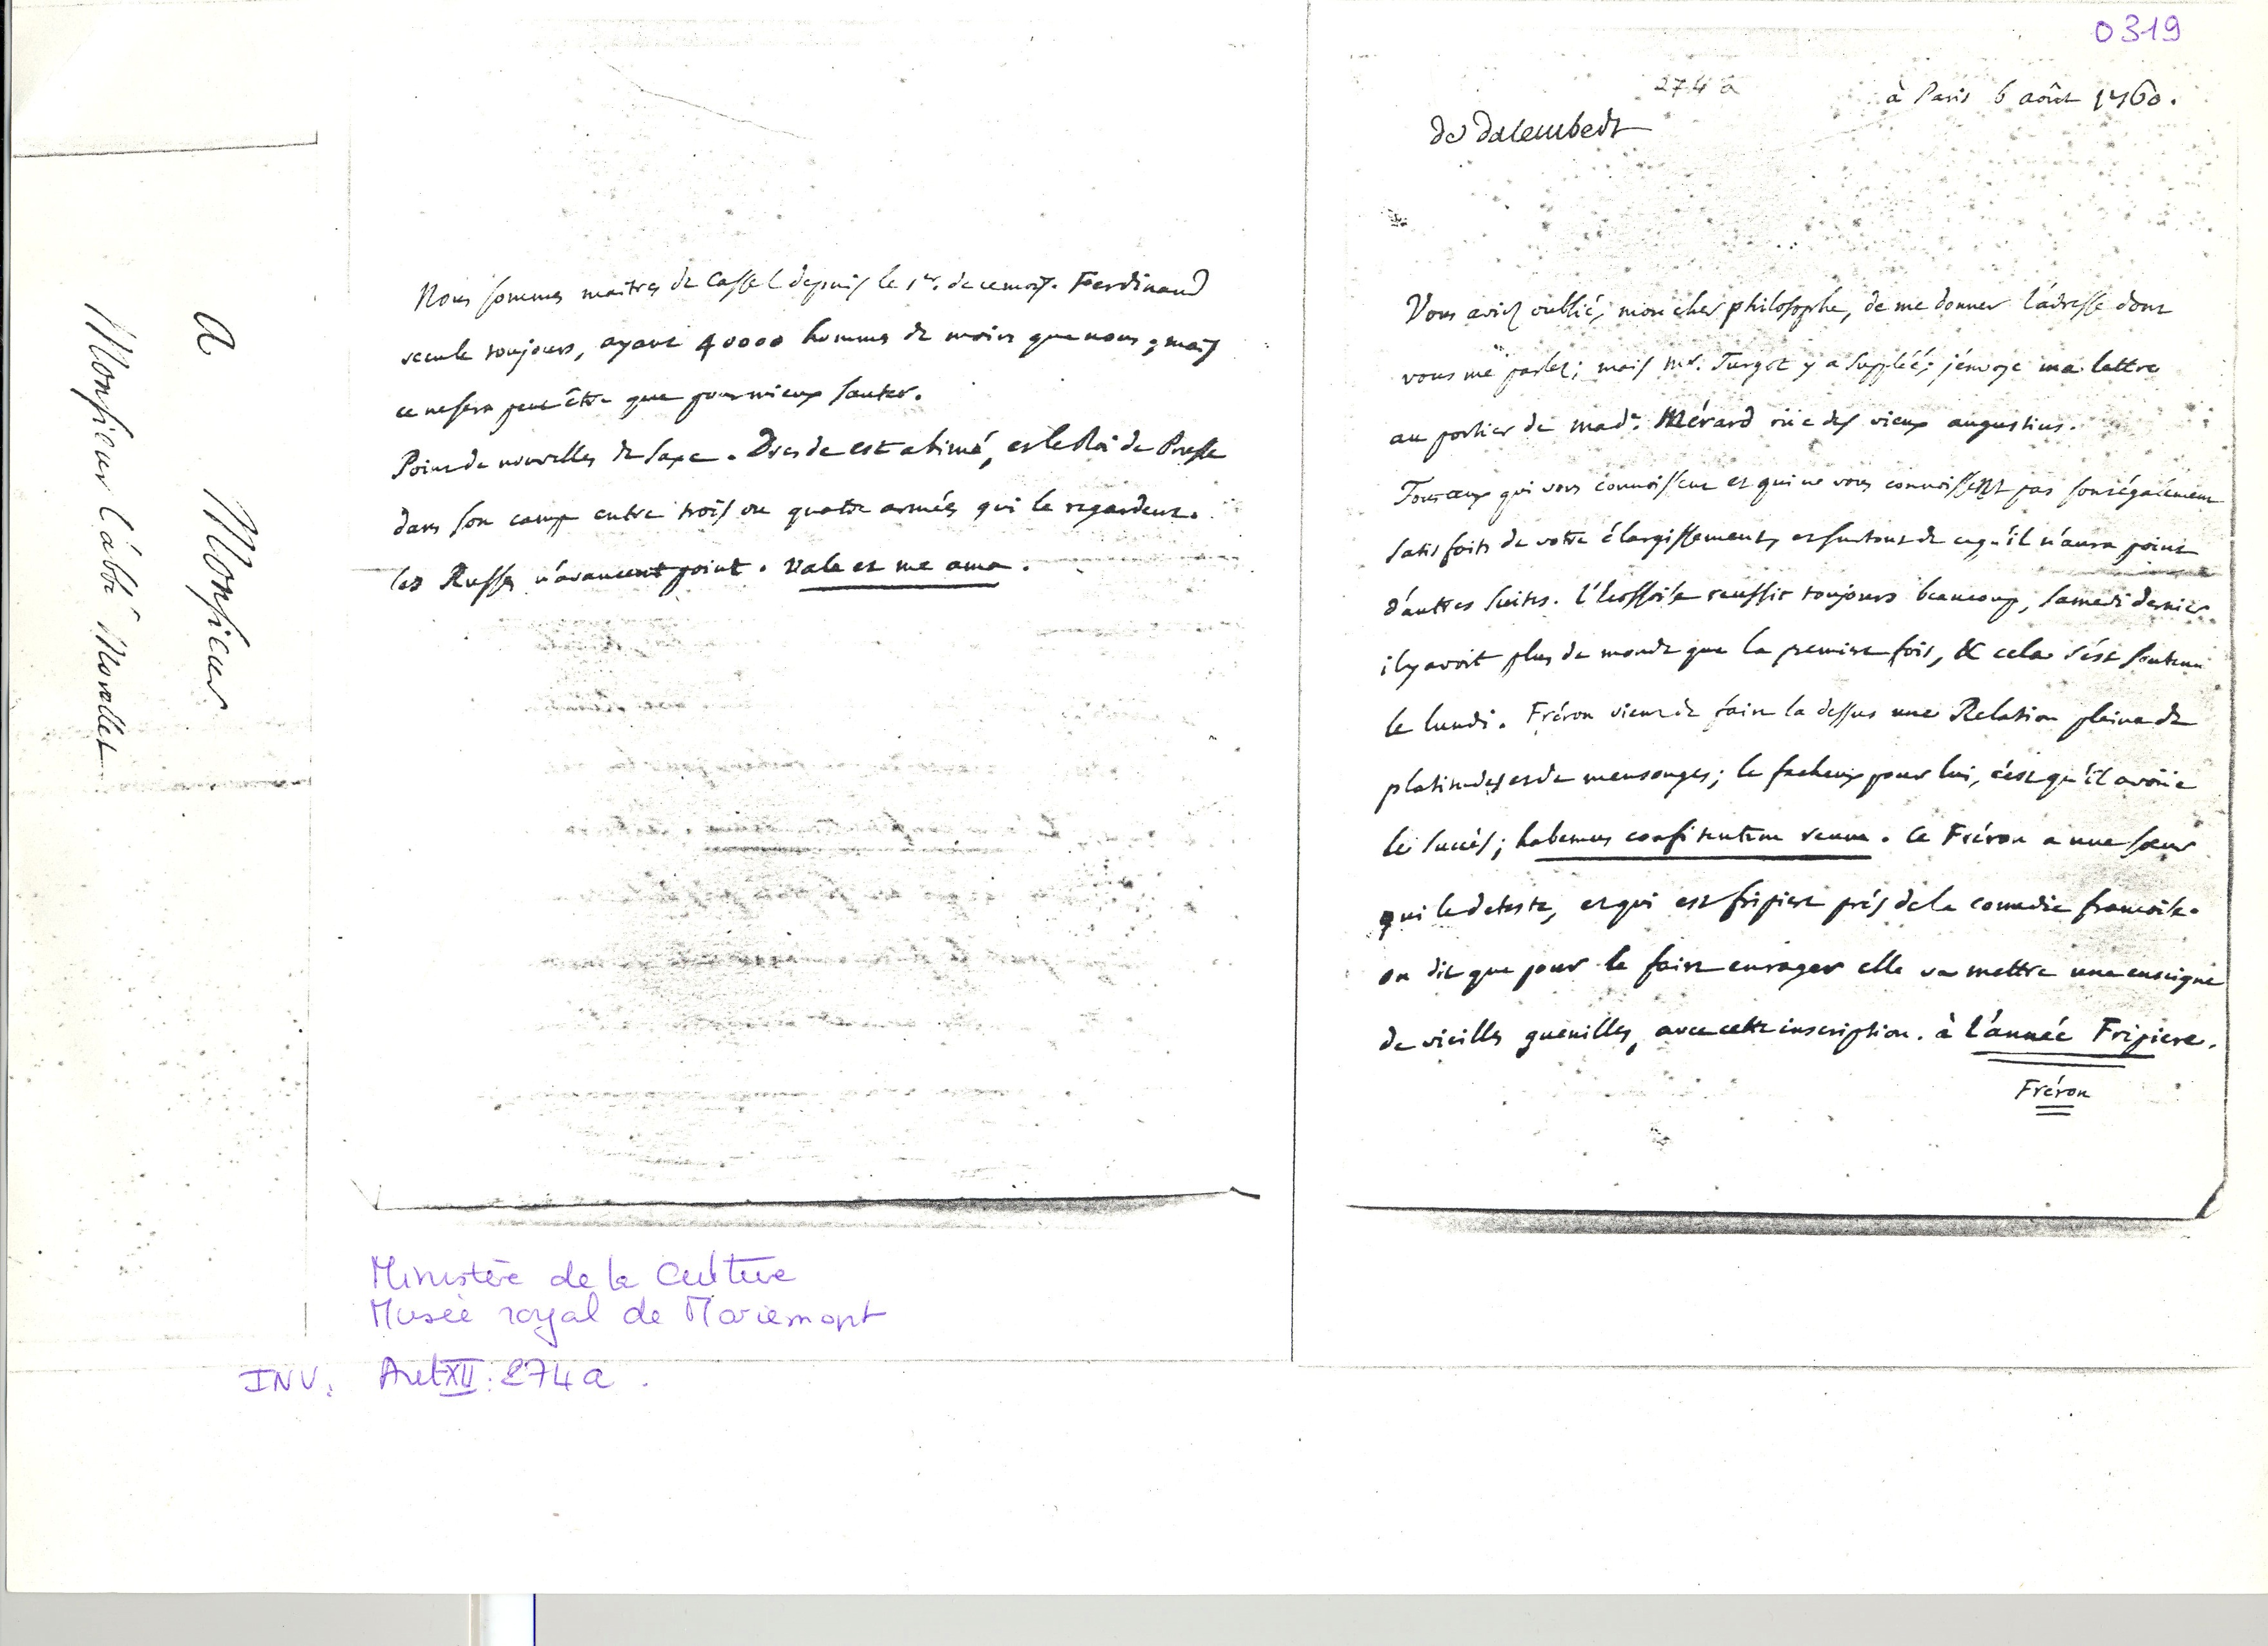 0319
274 a
à Paris 6 août 1760.
de Dalembert
Vous aviez oublié, mon cher philosophe, de me donner l'adresse dont
vous me parlez; mais mr. Turgot y a suppléé; j'envoye ma lettre
au portier de made. Mérard rüe des vieux augustins.
Tous ceux qui vous connoissent et qui ne vous connoissent pas sont également
satisfaits de votre élargissement, et surtout de ce qu'il n'aura point
d'autres suites. L'Ecossoise reussit toujours beaucoup, samedi dernier
il y avoit plus de monde que la premiere fois, & cela s'est soutenu
le lundi. Fréron vient de faire la dessus une Relation pleine de
platitudes et de mensonges; le facheux pour lui, c'est qu'il avoüe
le succès; habemus confitentem reum. Ce Fréron a une sœur
qui le deteste, et qui est fripiere près de la comedie francoise.
on dit que pour le faire enrager elle va mettre une enseigne
de vieilles guenilles, avec cette inscription. à l'année Fripiere.
Fréron
Nous sommes maitres de Cassel depuis le 1er. de ce mois. Ferdinand
recule toujours, ayant 40000 hommes de moins que nous; mais
ce ne sera peut être que pour mieux sauter.
Point de nouvelles de Saxe. Dresde est abimé, et le Roi de Prusse
dans son camp entre trois ou quatre armées qui le regardent.
les Russes n'avancent point. Vale et me ama.
a Monsieur
Monsieur l'abbé Morellet
Ministère de la Culture
Musée royal de Mariemont
INV. Aut XII: 274 a.